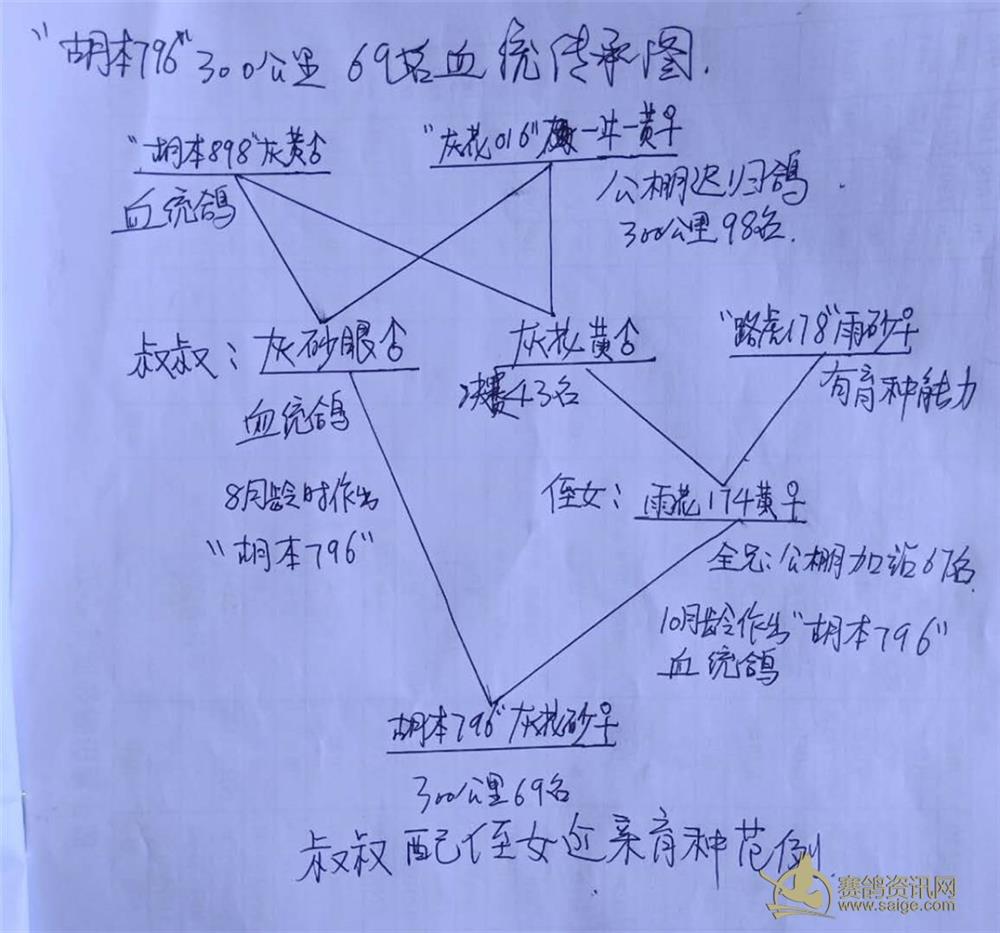 "胡本796"300公里69名血统传承图.
"胡本898"灰黄♂
"灰花016" 一井一黄♀
血统鸽
公棚迟归鸽
300公里98名.
叔叔:灰砂眼♂
灰花黄♂
"路虎178"雨砂♀
决赛43名
有育种能力
血统鸽
8月龄时作出
"胡本796"
侄女:雨花174黄♀
全兄:公棚加站67名
10月龄作出"胡本796"
血统鸽
胡本796"灰花砂♀
300公里69名
叔叔配侄女近亲育种范例.
赛鸽资讯网
www.saige.com